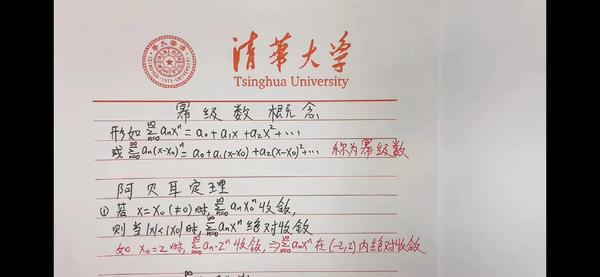 清華大学
Tsinghua University
幂级数概念
形如 ∑_{n=0}^{∞} a_n x^n = a_0 + a_1 x + a_2 x^2 + ⋯
或 ∑_{n=0}^{∞} a_n (x-x_0)^n = a_0 + a_1 (x-x_0) + a_2 (x-x_0)^2 + ⋯ 称为幂级数
阿贝耳定理
① 若 x = x_0 (≠0) 时, ∑_{n=0}^{∞} a_n x_0^n 收敛,
则当 |x| < |x_0| 时 ∑_{n=0}^{∞} a_n x^n 绝对收敛
如 x_0 = 2 时, ∑_{n=0}^{∞} a_n · 2^n 收敛, ⇒ ∑_{n=0}^{∞} a_n x^n 在 (-2,2) 内绝对收敛